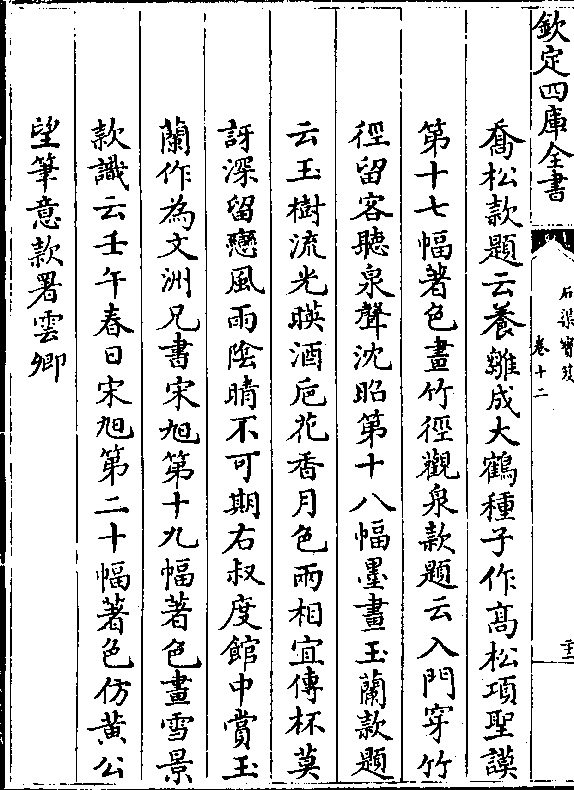 欽定四庫全書
石渠寶笈
卷十二
喬松款題云養雛成大鶴種子作髙松項聖謨
第十七幅著色畫竹徑觀泉款題云入門穿竹
徑留客聽泉聲沈昭第十八幅墨畫玉蘭款題
云玉樹流光暎酒巵花香月色兩相宜傳杯莫
訝深留戀風雨陰晴不可期右叔度館中賞玉
蘭作為文洲兄書宋旭第十九幅著色畫雪景
款識云壬午春日宋旭第二十幅著色仿黄公
望筆意款署雲卿